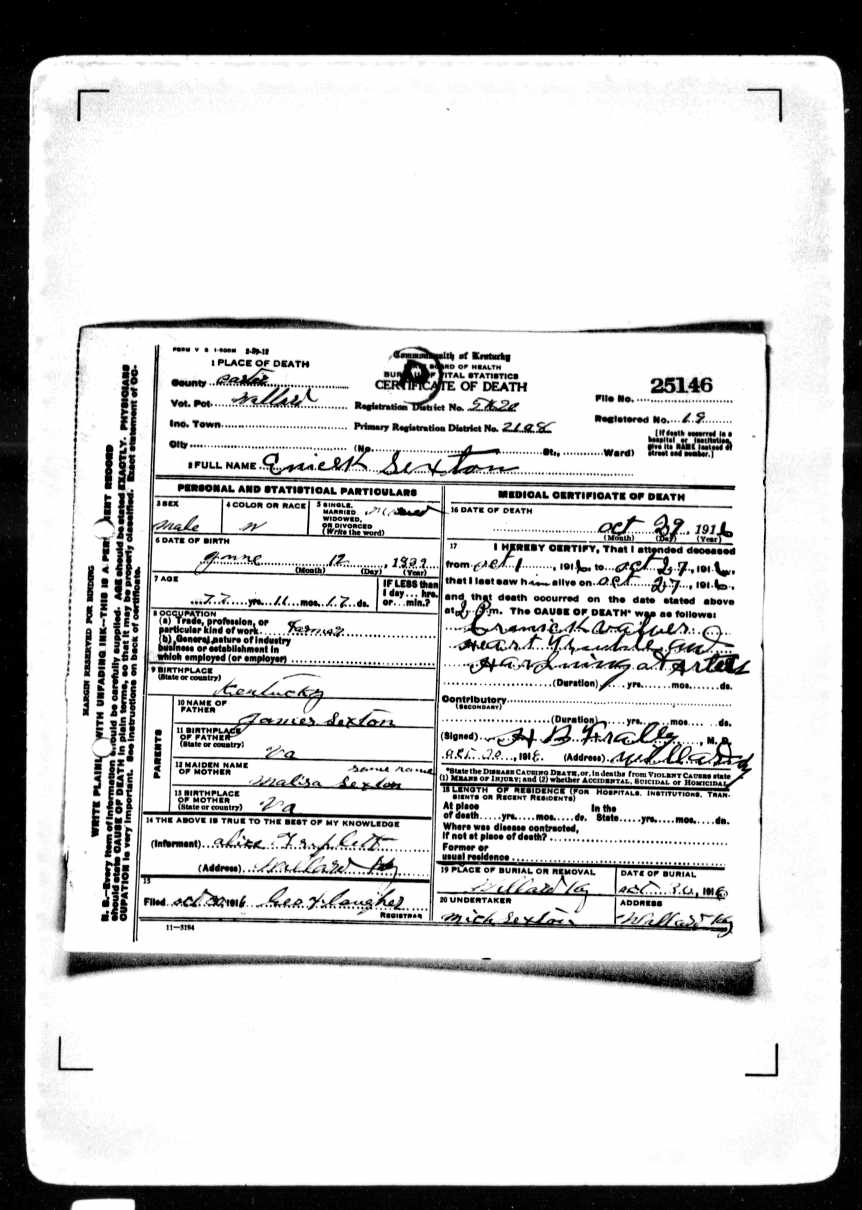 FORM V S 1-500M 2-29-12
1 PLACE OF DEATH
County Carter
Vot. Pct. Willard
Inc. Town
City
Commonwealth of Kentucky
BOARD OF HEALTH
BUREAU OF VITAL STATISTICS
CERTIFICATE OF DEATH
Registration District No. 5820
Primary Registration District No. 2108
(No. St., Ward)
File No. 25146
Registered No. 19
[If death occurred in a hospital or institution, give its NAME instead of street and number.]
2 FULL NAME Sexton
PERSONAL AND STATISTICAL PARTICULARS
3 SEX
male
4 COLOR OR RACE
W
5 SINGLE, MARRIED WIDOWED, OR DIVORCED (Write the word)
6 DATE OF BIRTH
12
(Month) (Day) (Year)
7 AGE
77 yrs. 11 mos. 17 ds.
IF LESS than 1 day... hrs. or... min.?
8 OCCUPATION
(a) Trade, profession, or particular kind of work Farmer
(b) General nature of industry business or establishment in which employed (or employer)
9 BIRTHPLACE
(State or country)
Kentucky
PARENTS
10 NAME OF FATHER
James Sexton
11 BIRTHPLACE OF FATHER
(State or country)
Va
12 MAIDEN NAME OF MOTHER
same name
Malisa Sexton
13 BIRTHPLACE OF MOTHER
(State or country)
Va
14 THE ABOVE IS TRUE TO THE BEST OF MY KNOWLEDGE
(Informant)
(Address) Willard Ky
15
Filed Oct 30, 1916 Geo
REGISTRAR
11—3194
MEDICAL CERTIFICATE OF DEATH
16 DATE OF DEATH
Oct 29, 1916
(Month) (Day) (Year)
17 I HEREBY CERTIFY, That I attended deceased
from Oct 1, 1916 to Oct 27, 1916,
that I last saw him alive on Oct 27, 1916,
and that death occurred on the date stated above
at 2 P m. The CAUSE OF DEATH* was as follows:
Heart
(Duration) yrs. mos. ds.
Contributory
(SECONDARY)
(Duration) yrs. mos. ds.
(Signed) H B Fraley, M. D.
Oct 30, 1916 (Address) Willard Ky
*State the DISEASE CAUSING DEATH, or, in deaths from VIOLENT CAUSES state
(1) MEANS OF INJURY; and (2) whether ACCIDENTAL, SUICIDAL or HOMICIDAL
18 LENGTH OF RESIDENCE (FOR HOSPITALS, INSTITUTIONS, TRANSIENTS OR RECENT RESIDENTS)
At place of death yrs. mos. ds. In the State yrs. mos. ds.
Where was disease contracted,
if not at place of death?
Former or
usual residence
19 PLACE OF BURIAL OR REMOVAL
Willard Ky
DATE OF BURIAL
Oct 30, 1916
20 UNDERTAKER
Mich Sexton
ADDRESS
Willard Ky
MARGIN RESERVED FOR BINDING
WRITE PLAINLY WITH UNFADING INK—THIS IS A PERMANENT RECORD
N. B.—Every item of information should be carefully supplied. AGE should be stated EXACTLY. PHYSICIANS
should state CAUSE OF DEATH in plain terms, so that it may be properly classified. Exact statement of OC-
CUPATION is very important. See instructions on back of certificate.